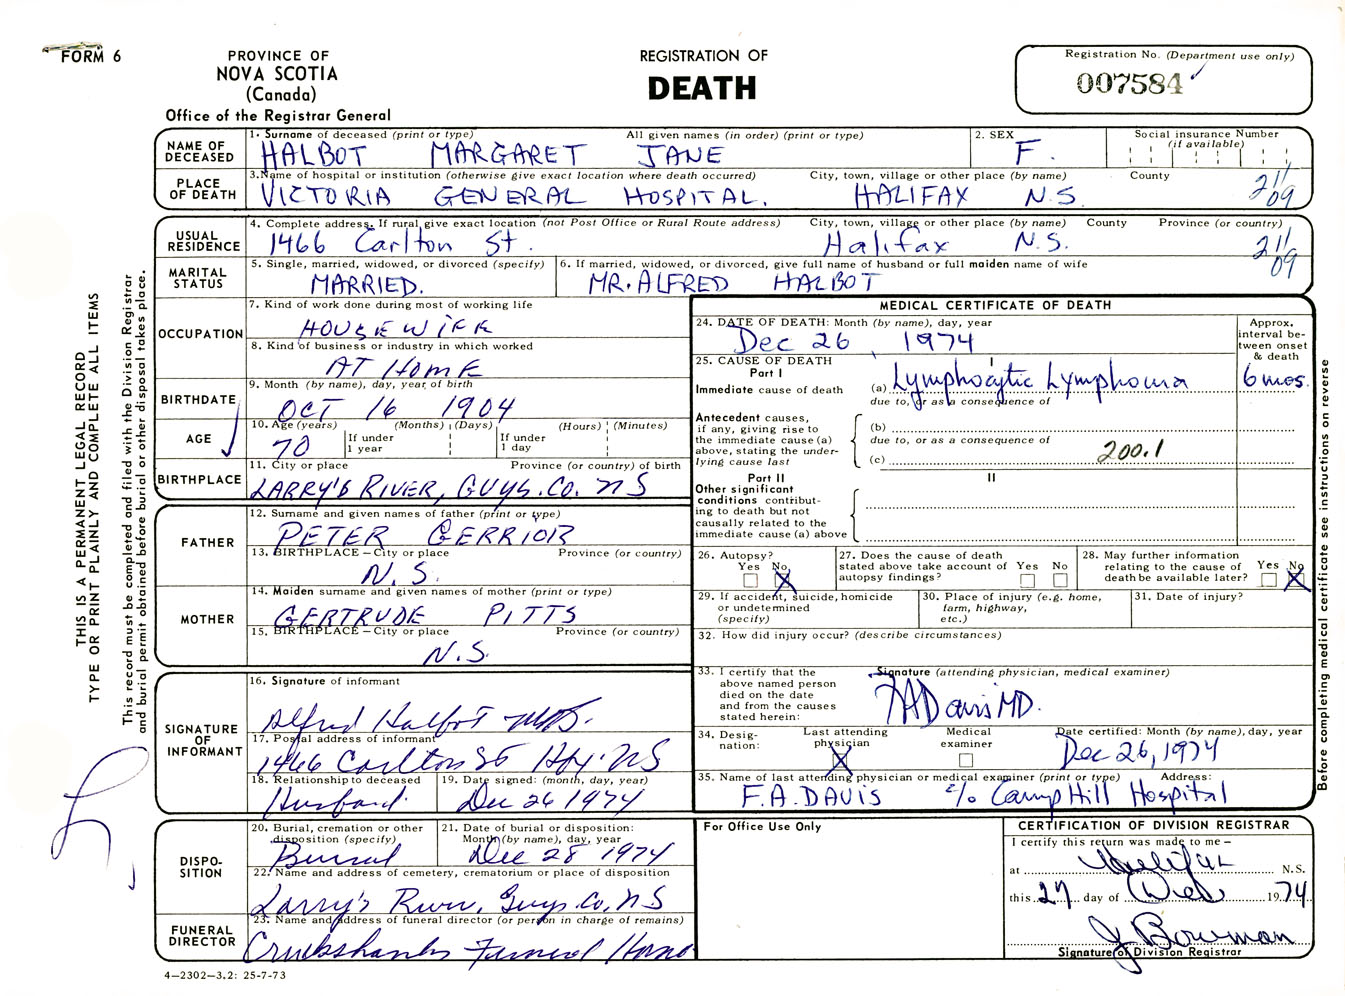 FORM 6
PROVINCE OF
NOVA SCOTIA
(Canada)
Office of the Registrar General
REGISTRATION OF
DEATH
Registration No. (Department use only)
007584
THIS IS A PERMANENT LEGAL RECORD
TYPE OR PRINT PLAINLY AND COMPLETE ALL ITEMS
This record must be completed and filed with the Division Registrar
and burial permit obtained before burial or other disposal takes place.
NAME OF DECEASED
1. Surname of deceased (print or type) All given names (in order) (print or type)
HALBOT MARGARET JANE
2. SEX
F.
Social insurance Number
(if available)
PLACE OF DEATH
3. Name of hospital or institution (otherwise give exact location where death occurred) City, town, village or other place (by name) County
VICTORIA GENERAL HOSPITAL. HALIFAX N.S.
211
09
USUAL RESIDENCE
4. Complete address. If rural give exact location (not Post Office or Rural Route address) City, town, village or other place (by name) County Province (or country)
1466 Carlton St. Halifax N.S.
211
09
MARITAL STATUS
5. Single, married, widowed, or divorced (specify)
MARRIED.
6. If married, widowed, or divorced, give full name of husband or full maiden name of wife
MR. ALFRED HALBOT
OCCUPATION
7. Kind of work done during most of working life
HOUSEWIFE
8. Kind of business or industry in which worked
AT HOME
BIRTHDATE
9. Month (by name), day, year of birth
OCT 16 1904
AGE
10. Age (years) (Months) (Days) (Hours) (Minutes)
70 If under 1 year If under 1 day
BIRTHPLACE
11. City or place Province (or country) of birth
LARRY'S RIVER, GUYS. CO. NS
FATHER
12. Surname and given names of father (print or type)
PETER GERRIOR
13. BIRTHPLACE – City or place Province (or country)
N.S.
MOTHER
14. Maiden surname and given names of mother (print or type)
GERTRUDE PITTS
15. BIRTHPLACE – City or place Province (or country)
N.S.
SIGNATURE OF INFORMANT
16. Signature of informant
Alfred Halbot
17. Postal address of informant
1466 Carlton St Hfx. NS
18. Relationship to deceased
Husband.
19. Date signed: (month, day, year)
Dec 26 1974
DISPO-
SITION
20. Burial, cremation or other
disposition (specify)
Burial
21. Date of burial or disposition:
Month (by name), day, year
Dec 28 1974
22. Name and address of cemetery, crematorium or place of disposition
Larry's River, Guys. Co, NS
FUNERAL DIRECTOR
23. Name and address of funeral director (or person in charge of remains)
Cruikshanks Funeral Home
4–2302–3.2: 25-7-73
MEDICAL CERTIFICATE OF DEATH
24. DATE OF DEATH: Month (by name), day, year
Dec 26, 1974
Approx.
interval be-
tween onset
& death
25. CAUSE OF DEATH
Part I
I
Immediate cause of death
(a) Lymphocytic Lymphoma 6 mos.
due to, or as a consequence of
Antecedent causes,
if any, giving rise to
the immediate cause (a)
above, stating the under-
lying cause last
(b)
due to, or as a consequence of
(c) 200.1
Part II
II
Other significant
conditions contribut-
ing to death but not
causally related to the
immediate cause (a) above
26. Autopsy?
Yes No
X
27. Does the cause of death
stated above take account of
autopsy findings?
Yes No
28. May further information
relating to the cause of
death be available later?
Yes No
X
29. If accident, suicide, homicide
or undetermined
(specify)
30. Place of injury (e.g. home,
farm, highway,
etc.)
31. Date of injury?
32. How did injury occur? (describe circumstances)
33. I certify that the
above named person
died on the date
and from the causes
stated herein:
Signature (attending physician, medical examiner)
FA Davis MD.
34. Desig-
nation:
Last attending
physician
X
Medical
examiner
Date certified: Month (by name), day, year
Dec 26, 1974
35. Name of last attending physician or medical examiner (print or type) Address:
F.A. DAVIS c/o Camp Hill Hospital
Before completing medical certificate see instructions on reverse
For Office Use Only
CERTIFICATION OF DIVISION REGISTRAR
I certify this return was made to me –
at Halifax N.S.
this 27 day of Dec 1974
J Bowman
Signature of Division Registrar